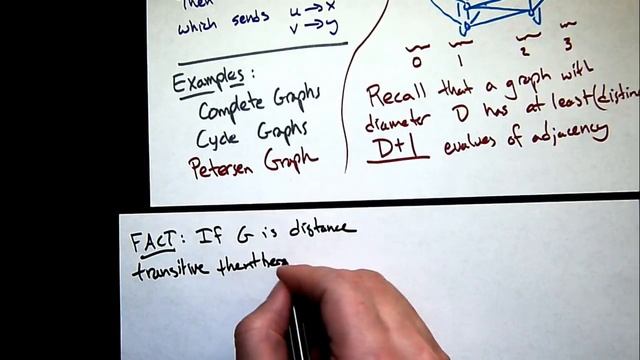 Then
which sends u→x
v→y
Examples:
Complete Graphs
Cycle Graphs
Petersen Graph
0 1 2 3
Recall that a graph with
diameter D has at least (distinc
D+1 evalues of adjacency
FACT: If G is distance
transitive then